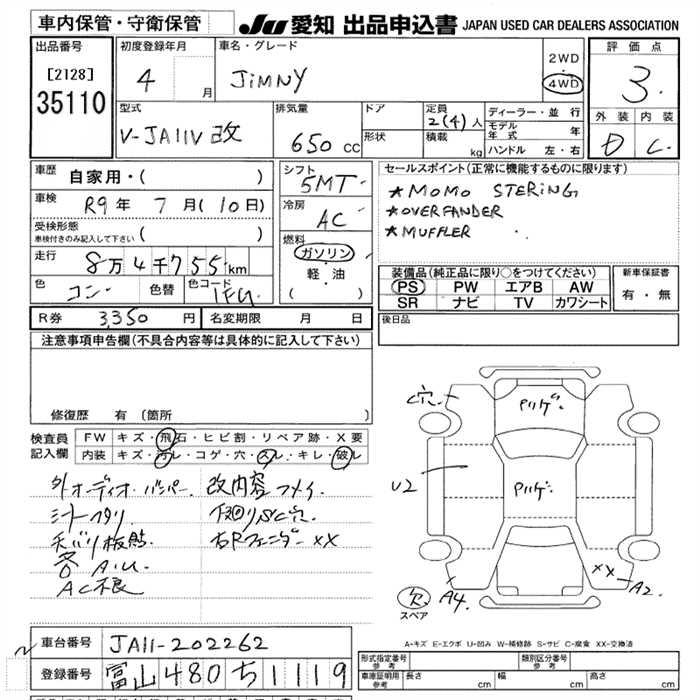 車内保管・守衛保管
JU 愛知 出品申込書 JAPAN USED CAR DEALERS ASSOCIATION
出品番号
[2128]
35110
初度登録年月
4 月
車名・グレード
JiMNY
2WD
・
4WD
評価点
3.
外装 内装
D C.
型式
V-JA11V 改
排気量
650 cc
ドア
形状
定員
2(4)人
積載 kg
ディーラー・並行
モデル年式 年
ハンドル 左・右
車歴 自家用・( )
車検 R9年 7月(10日)
受検形態
車検付きのみ記入して下さい ( )
走行 8万4千755km
色 コン 色替 色コード 1FG.
シフト
5MT
冷房
AC
燃料
ガソリン
・
軽・油
( )
セールスポイント(正常に機能するものに限ります)
★MOMO STERiNG
★OVERFANDER
★MUFFLER
装備品(純正品に限り○をつけてください)
PS PW エアB AW
SR ナビ TV カワシート
新車保証書
有・無
R券 3,350円 名変期限 月 日
後日品
注意事項申告欄(不具合内容等は具体的に記入して下さい)
修復歴 有(箇所 )
検査員記入欄
FW キズ・飛石・ヒビ割・リペア跡・X要
内装 キズ・汚レ・コゲ・穴・スレ・キレ・破レ
外オーディオ・バンパー 改内容フメイ
シートヘタリ 下回りSC穴.
天バリ板貼 右Rフェンダー XX
各 A.U.
AC不良
C穴.
Pリゲ.
U2
Pリゲ.
XX
A2
A4
欠.
スペア
A-キズ E-エクボ U-凹み W-補修跡 S-サビ C-腐食 XX-交換済
車台番号 JA11-202262
登録番号 富山480ち1119
形式指定番号 参考
類別区分番号 参考
車庫証明用 参考 長さ cm 幅 cm 高さ cm